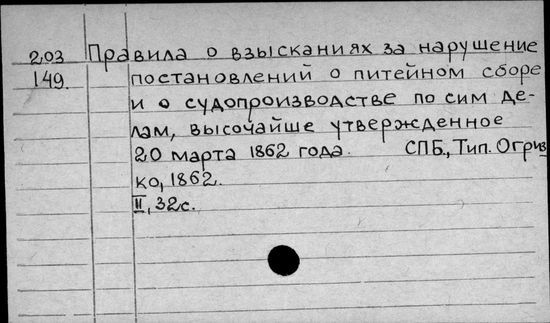 203 Правила о взысканиях за нарушение
149. постановлений о питейном сборе
и о судопроизводстве по сим де-
лам, высочайше утвержденное
20 марта 1862 года. СПБ., Тип. Огриз
ко, 1862.
II, 32с.